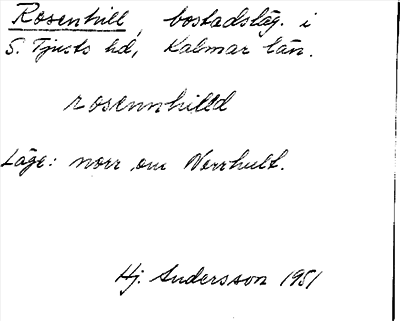 Rosenhill, bostadsläg. i
S. Tjusts hd, Kalmar län.
rosennhilld
Läge: norr om Norrhult.
Hj. Andersson 1951